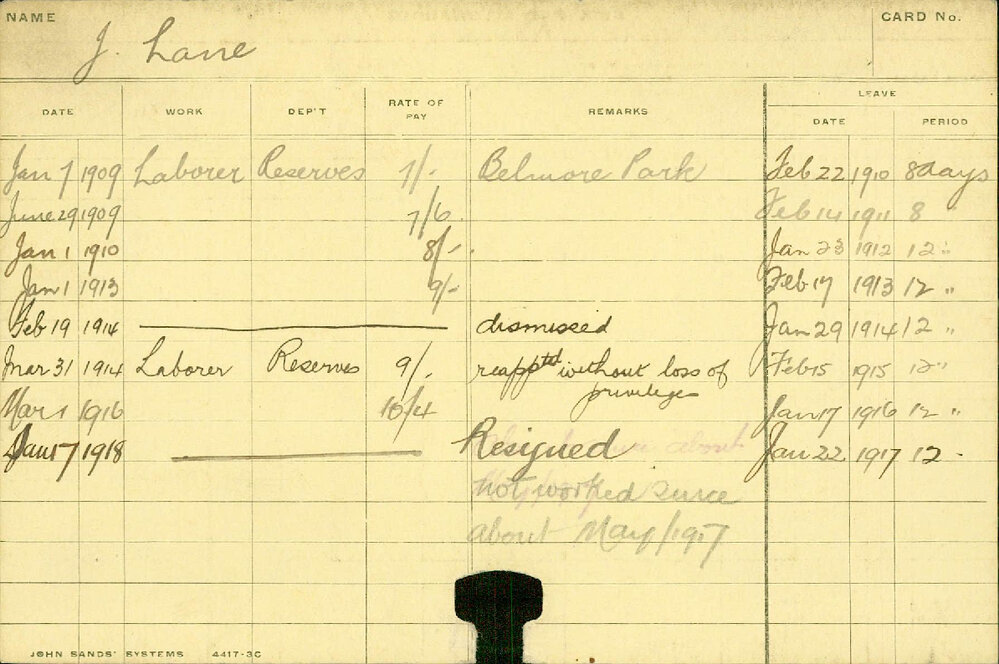 NAME CARD No.
J. Lane
LEAVE
DATE WORK DEP'T RATE OF PAY REMARKS DATE PERIOD
Jan 7 1909 Laborer Reserves 7/- Belmore Park Feb 22 1910 8 days
June 29 1909 7/6 Feb 14 1911 8 "
Jan 1 1910 8/- Jan 23 1912 12 "
Jan 1 1913 9/- Feb 17 1913 12 "
Feb 19 1914 dismissed Jan 29 1914 12 "
Mar 31 1914 Laborer Reserves 9/- reapptd without loss of Feb 15 1915 12 "
privileges
Mar 1 1916 10/4 Jan 17 1916 12 "
Jan 17 1918 Resigned about Jan 22 1917 12 -
not worked since
about May/1917
JOHN SANDS' SYSTEMS 4417-3C